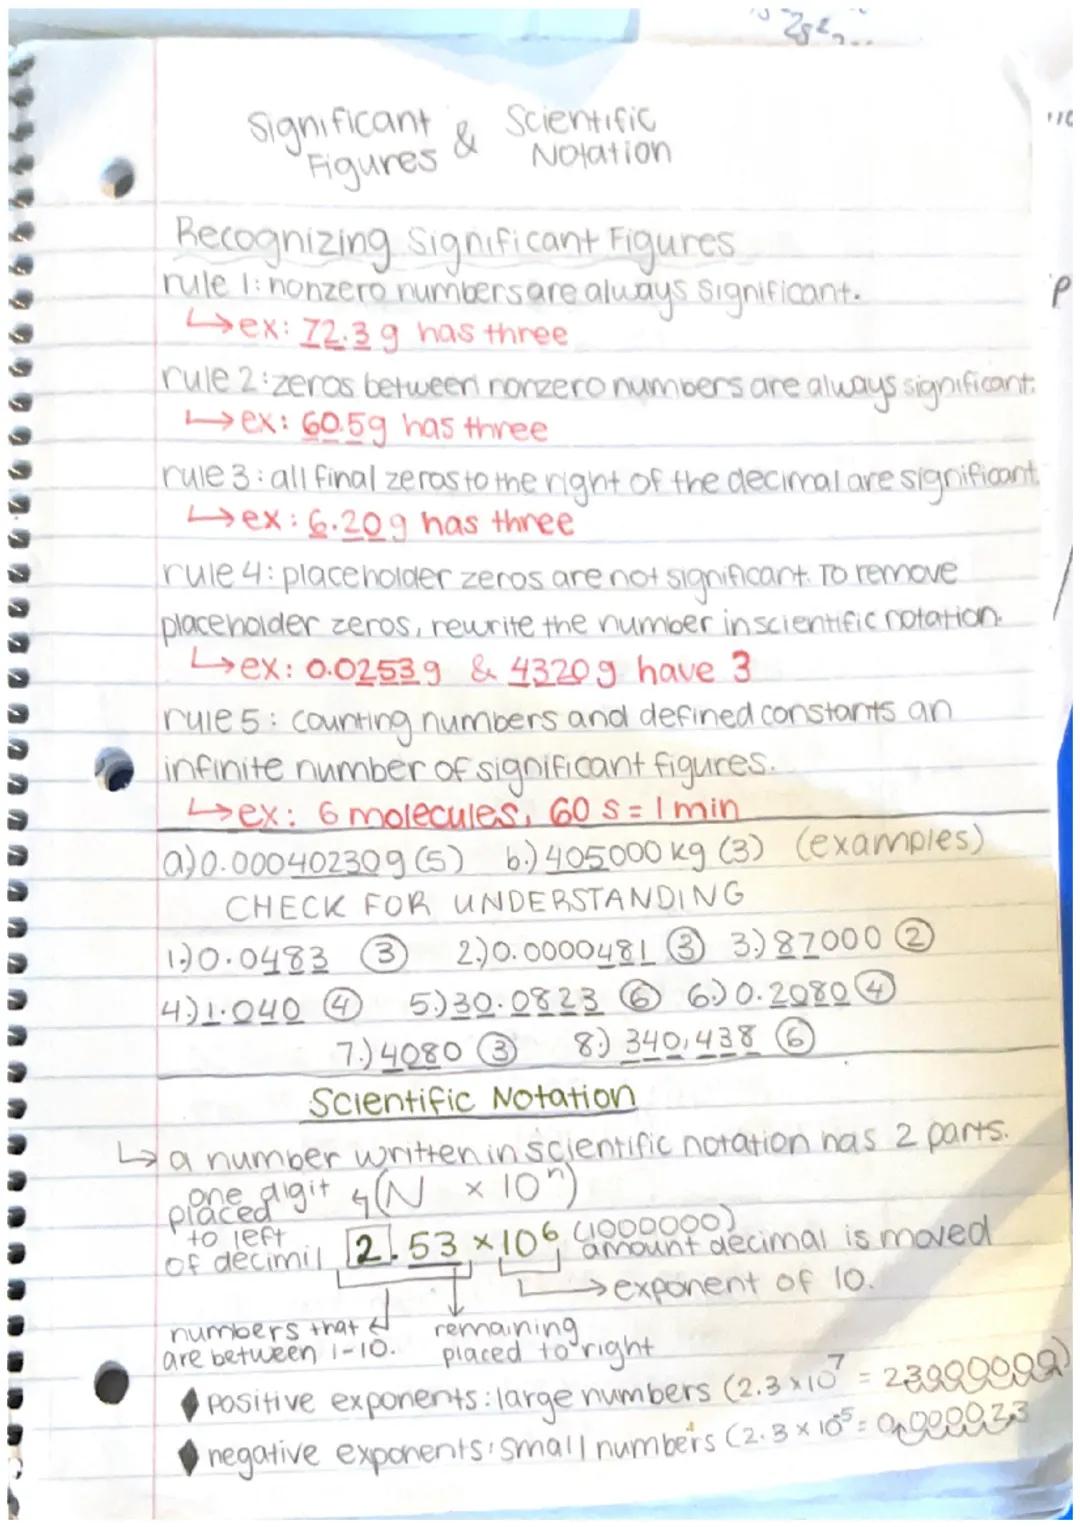 2s²
Significant & Scientific
Figures Notation
Recognizing Significant Figures
rule 1: nonzero numbers are always significant.
↳ex: 72.3 g has three
rule 2: zeros between nonzero numbers are always significant.
↳ex: 60.5g has three
rule 3: all final zeros to the right of the decimal are significant.
↳ex: 6.20 g has three
rule 4: placeholder zeros are not significant. To remove
placeholder zeros, rewrite the number in scientific notation.
↳ex: 0.0253 g & 4320 g have 3
rule 5: counting numbers and defined constants an
infinite number of significant figures.
↳ex: 6 molecules, 60 s = 1 min
a) 0.00040230 g (5) b.) 405000 kg (3) (examples)
CHECK FOR UNDERSTANDING
1.) 0.0483 ③ 2.) 0.0000481 ③ 3.) 87000 ②
4.) 1.040 ④ 5.) 30.0823 ⑥ 6.) 0.2080 ④
7.) 4080 ③ 8.) 340,438 ⑥
Scientific Notation
↳ a number written in scientific notation has 2 parts.
one digit (N × 10ⁿ)
placed
to left (1000000)
of decimil 2.53 × 10⁶ amount decimal is moved
→exponent of 10.
numbers that remaining
are between 1-10. placed to right
♦ positive exponents: large numbers (2.3 × 10⁷ = 23000000)
♦ negative exponents: small numbers (2.3 × 10⁻⁵ = 0.000023